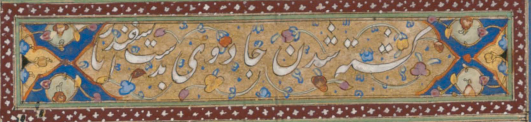 کشته شدن جادوی بدست اسفندیار